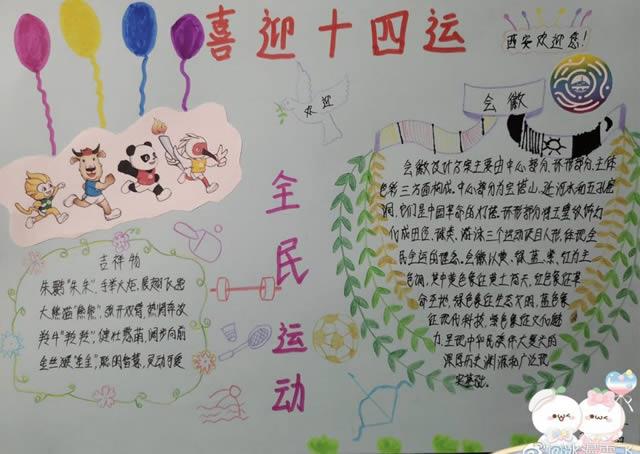 喜迎十四运
西安欢迎您!
欢迎
会徽
会徽设计方案主要由中心部分、环形部分、主体
色彩三方面构成。中心部分为宝塔山、延河水和五孔窑
洞,它们是中国革命的灯塔。环形部分
代
三个运动项目人形,体现全
民全运的理念。会徽以黄、绿、蓝、橙、红为主
色调,其中黄色象征黄土高天,红色象征革
命圣地,绿色象征生态文明,蓝色象
征现代科技,橙色象征文化魅
力,呈现中华民族伟大复兴的
深厚历史渊源和广泛现
实基础。
全民运动
吉祥物
朱鹮“朱朱”,手举火炬,展翅飞翔
大熊猫“熊熊”,张开双臂,热情奔放
羚牛“羚羚”,健壮勇猛,阔步向前
金丝猴“金金”,聪明智慧,灵动可爱